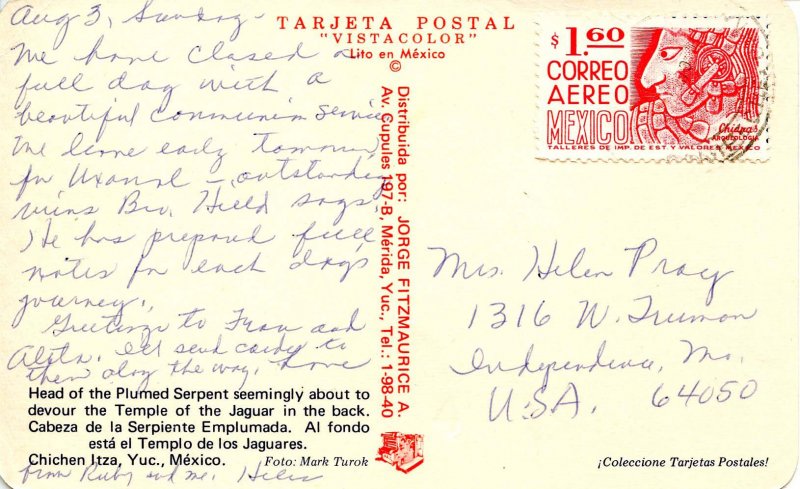 Aug 3, Sunday -
We have closed a
full day with a
beautiful communion service
We leave early tomorrow
for Uxmal - outstanding
ruins Bro. Hield says.
He has prepared full
notes for each day's
journey.
Greetings to Fran and
Aleta. I'll send cards to
them along the way. Love
from Ruby and me. Helen
Head of the Plumed Serpent seemingly about to
devour the Temple of the Jaguar in the back.
Cabeza de la Serpiente Emplumada. Al fondo
está el Templo de los Jaguares.
Chichen Itza, Yuc., México. Foto: Mark Turok
TARJETA POSTAL
"VISTACOLOR"
Lito en México
©
Distribuida por: JORGE FITZMAURICE A.
Av. Cupules 197-B, Mérida, Yuc., Tel.: 1-98-40
$1.60
CORREO
AEREO
MEXICO
Chiapas
ARQUEOLOGIA
TALLERES DE IMP. DE EST. Y VALORES-MEXICO
Mrs. Helen Pracy
1316 W. Truman
Independence, Mo.
U.S.A. 64050
¡Coleccione Tarjetas Postales!